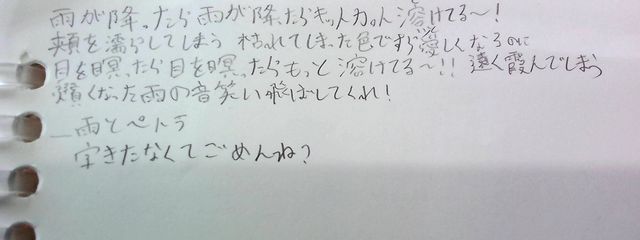 雨が降ったら雨が降ったらキットカット溶けてる〜!
頬を濡らしてしまう 枯れてしまった色ですら愛しくなるのに
目を瞑ったら目を瞑ったらもっと溶けてる〜!! 遠く霞んでしまう
鈍くなった雨の音笑い飛ばしてくれ!
_雨とペトラ
字きたなくてごめんね?